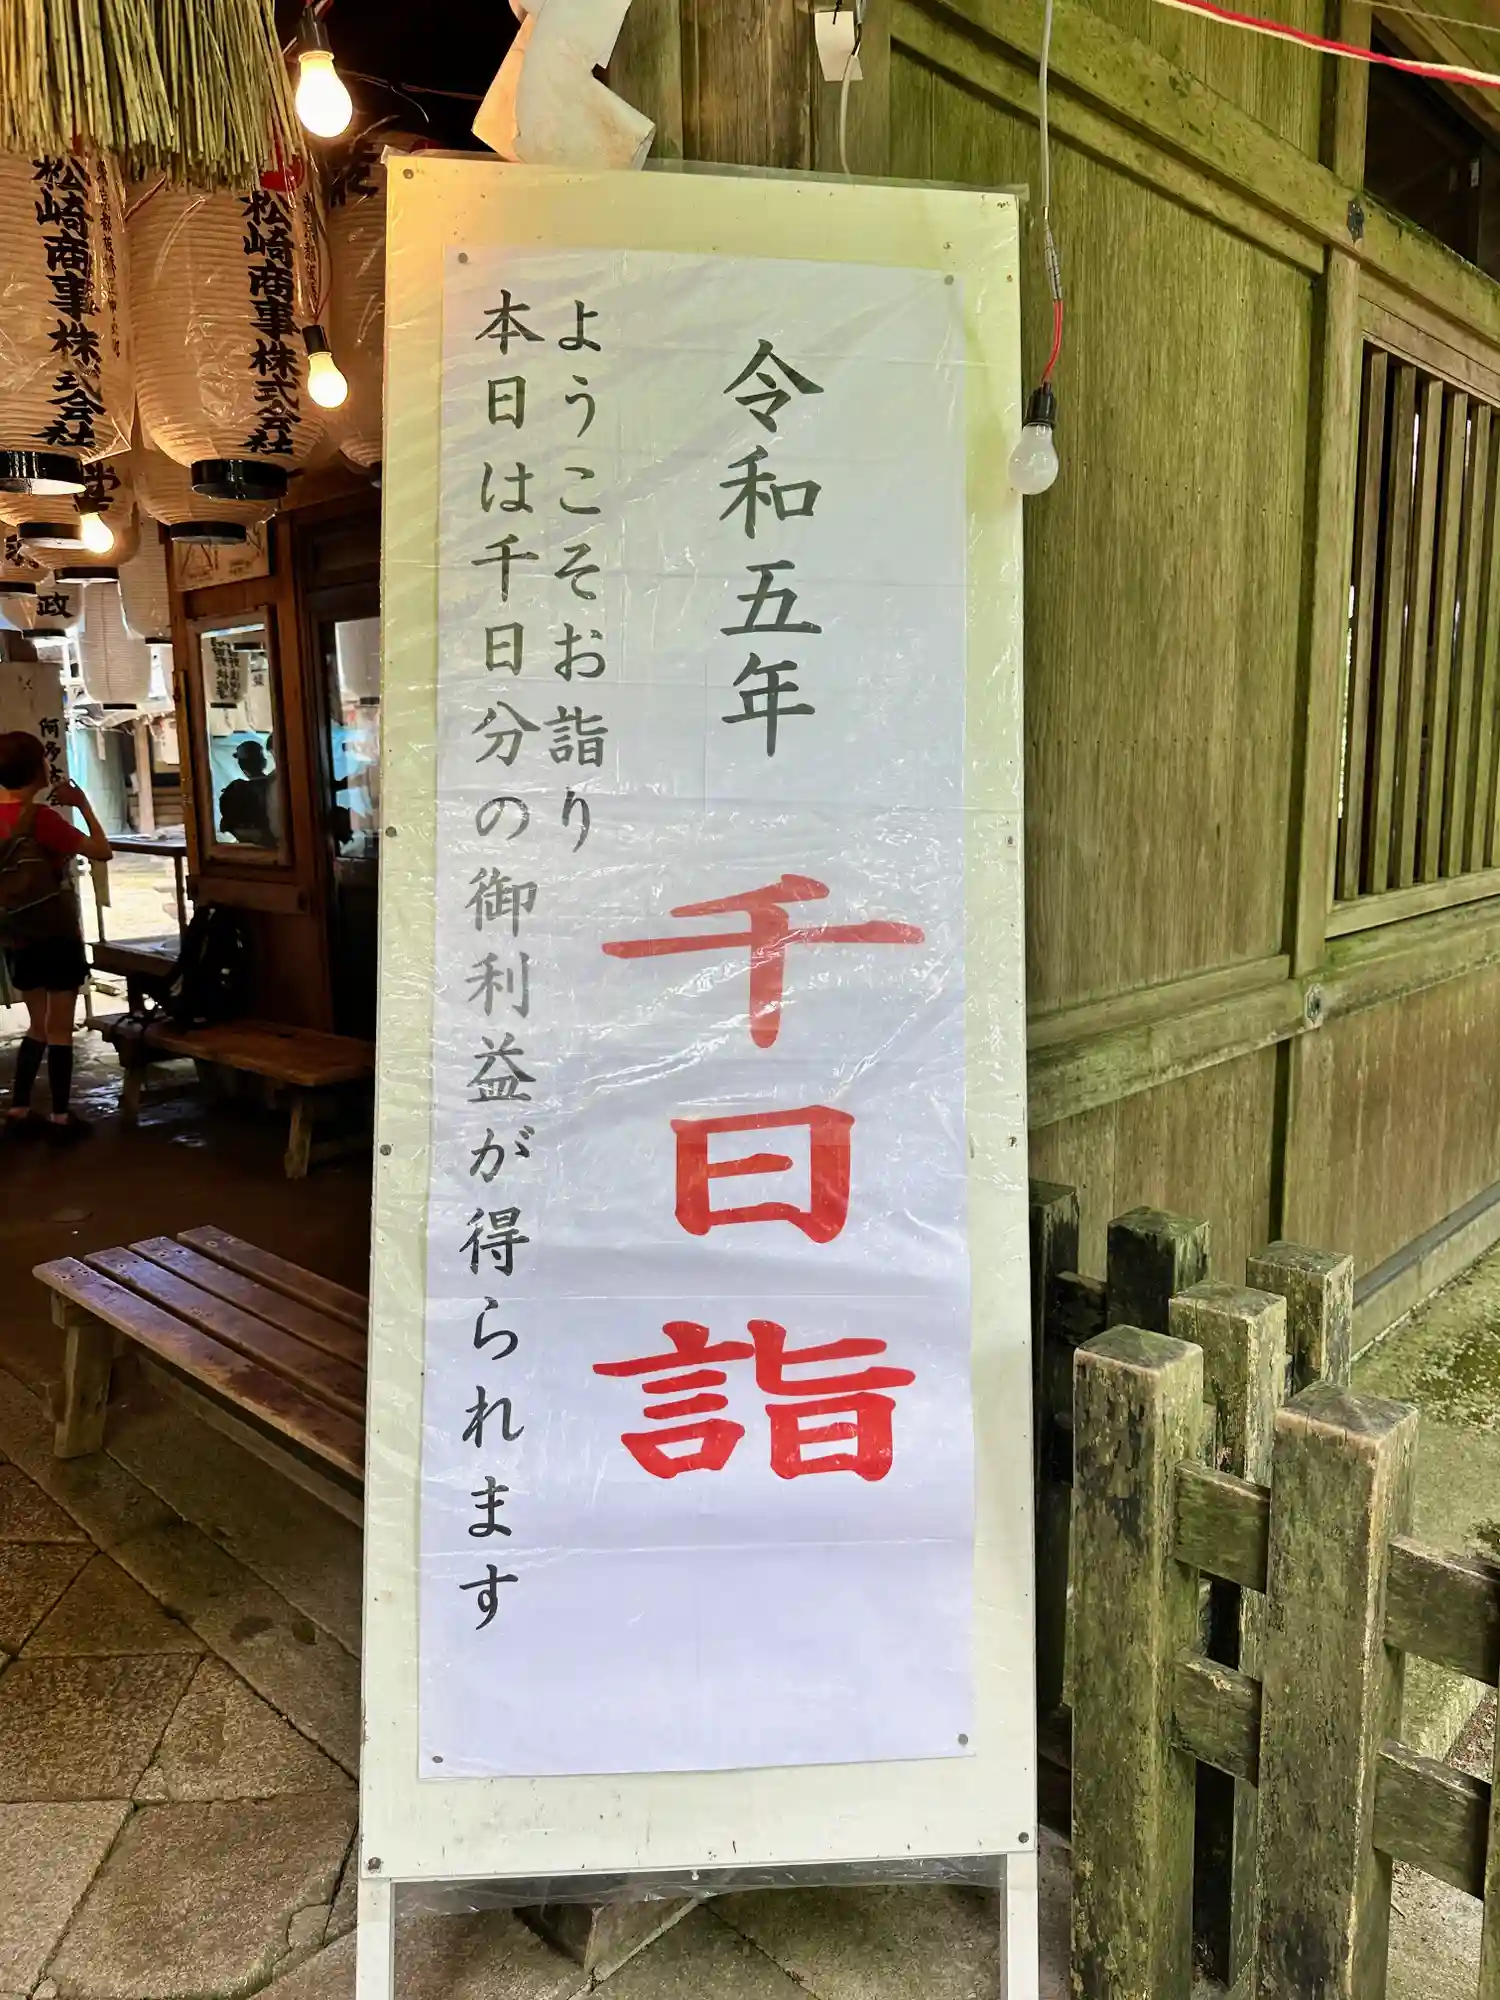 令和五年 千日詣
ようこそお詣り
本日は千日分の御利益が得られます
松崎商事株式会社
松崎商事株式会社
政